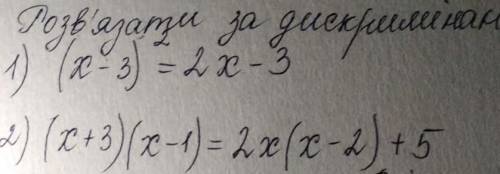 Розв'язати за дискримінан
1) (x-3)² = 2x-3
2) (x+3)(x-1) = 2x(x-2)+5